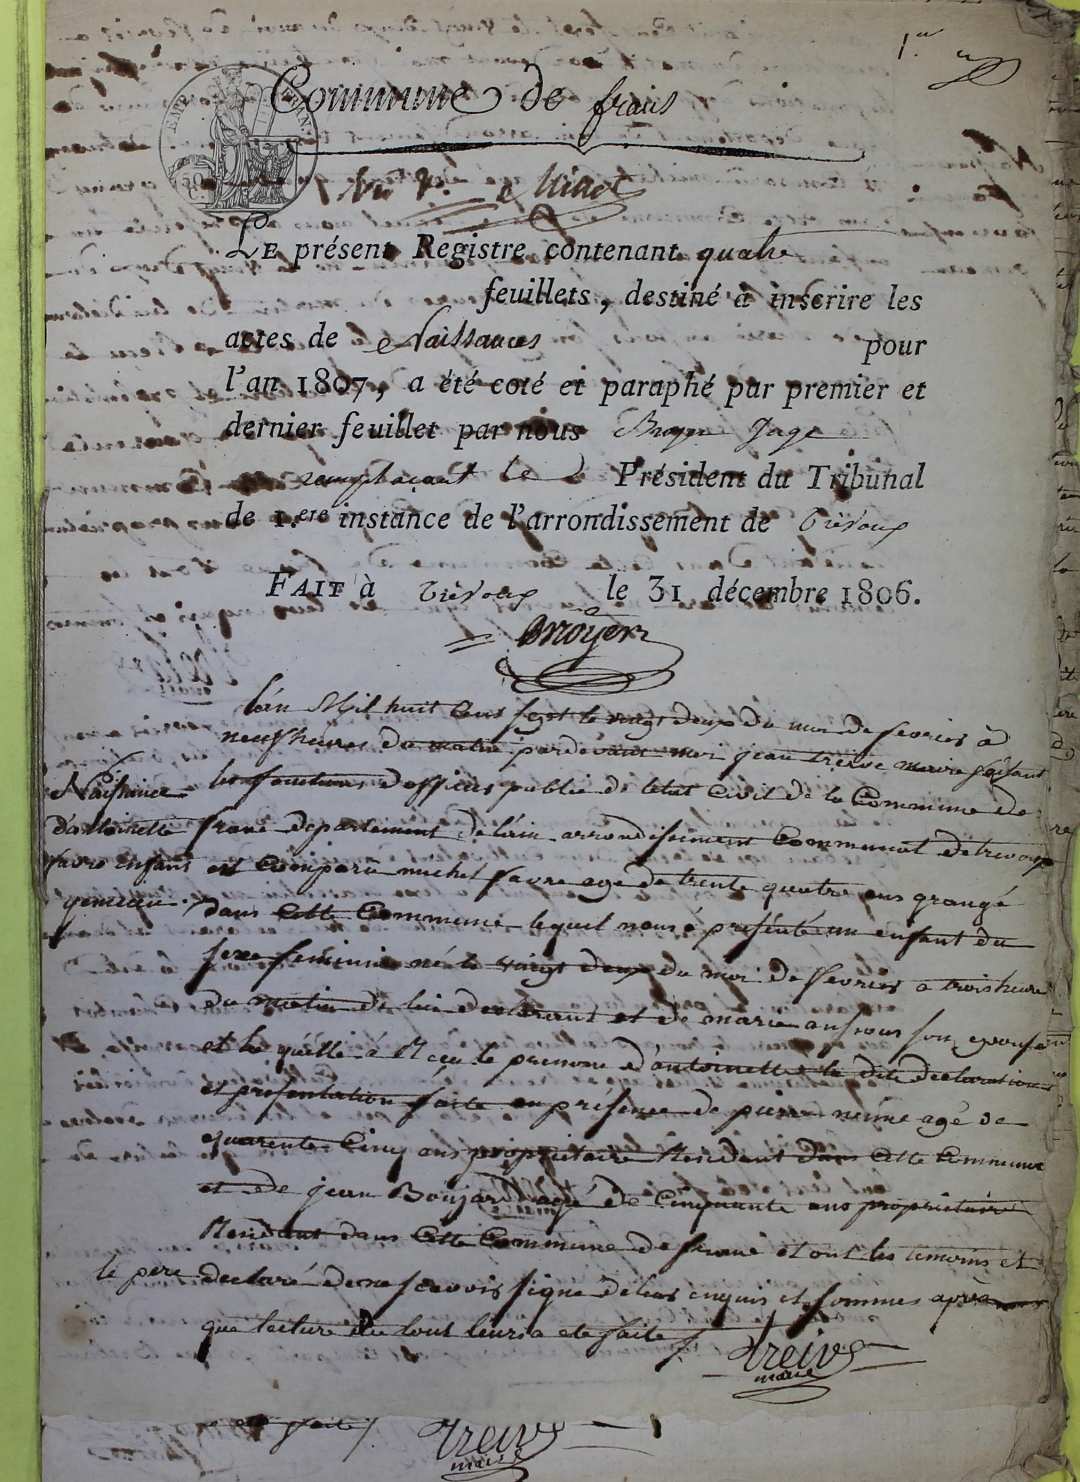 1.er
Commune de frans
EMP.
50
LE présent Registre contenant quatre
feuillets, destiné à inscrire les
actes de Naissances pour
l'an 1807, a été coté et paraphé par premier et
dernier feuillet par nous Juge
remplaçant le Président du Tribunal
de 1.ere instance de l'arrondissement de Trévoux
FAIT à Trévoux le 31 décembre 1806.
L'an Mil huit Cent sept le vingt deux du moi de fevrier à
neuf heures du matin pardevant moi jean treive maire faisant
Naissance
les fonctions d'officier public de letat Civil de la Commune de
d'antoinette
franc departement de lain arrondissement Communal de trevoux
favre enfant
est Comparu michel favre age de trente quatre ans grangé
dans Cette Commune lequel nous à présenté un enfant du
sexe feminin né le vingt deux du moi de fevrier a trois heure
du matin de lui declarant et de marie son epouse
et la quelle à Reçu le prenom d'antoinette la dite declaration
et presentation faite en présence de pierre agé de
quarente Cinq ans propriétaire Résidant dans Cette Commune
et de jean Boujard agé de Cinquante ans propriétaire
Residant dans Cette Commune de franc et ont les temoins et
le père declaré de ne scavoir signé de leur enquis et sommes après
que lecture du tout leurs a eté faite
treive
maire
faite
treive
maire